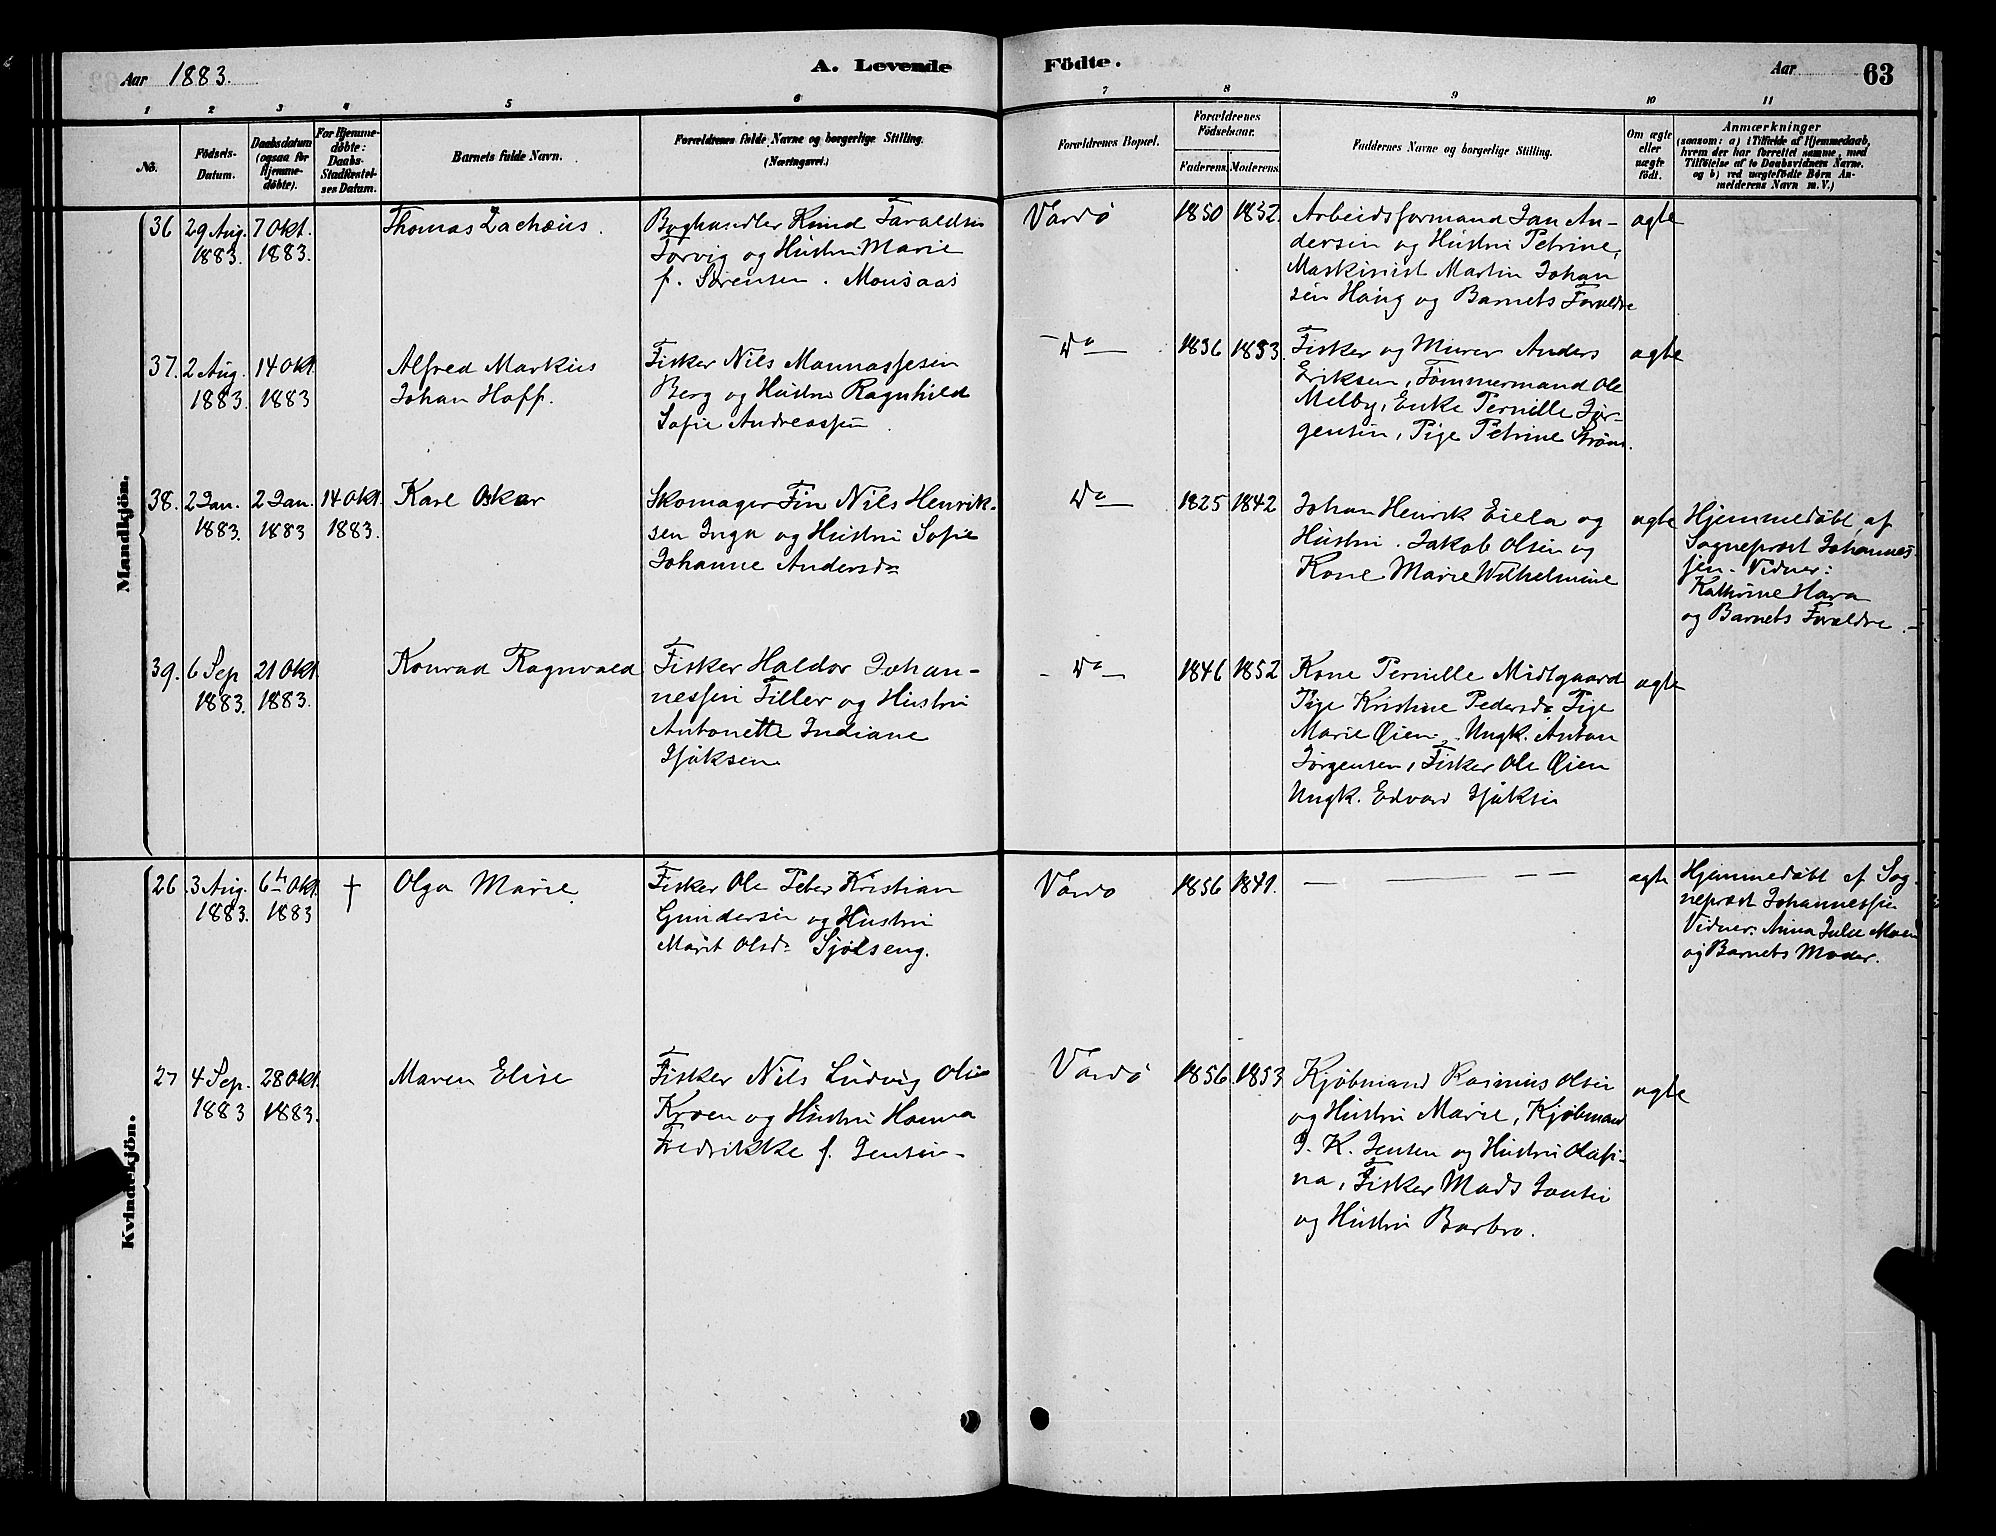 Aar 1883. A. Levende Födte. Aar 63
1 2 3 4 5 6 7 8 9 10 11
No.
Födsels-
Datum.
Daabsdatum
(ogsaa for
Hjemme-
döbte).
For Hjemme-
döbte:
Daabs-
Stadfæstel-
ses Datum.
Barnets fulde Navn.
Forældrenes fulde Navne og borgerlige Stilling.
(Næringsvei.)
Forældrenes Bopæl.
Forældrenes
Födselsaar.
Faderens. Moderens.
Faddernes Navne og borgerlige Stilling.
Om ægte
eller
uægte
født.
Anmærkninger
(saasom: a) i Tilfælde af Hjemmedaab,
hvem der har forrettet samme, med
Tilföielse af to Daabsvidners Navne.
og b) ved uægtefödte Börn An-
melderens Navn m. V.)
Mandkjön.
36 29 Aug. 1883. 7 Okt. 1883.
Thomas Zachæus.
Boghandler Knud Taraldsen
Torvig og Hustru Marie
f. Sørensen. Monsaas
Vardø 1850 1852.
Arbeidsformand Jan An-
dersen og Hustru Petrine,
Maskinist Martin Johan
sen Haug og Barnets Forældre
ægte
37. 2 Aug. 1883. 14 Okt. 1883
Alfred Markus
Johan Hoff.
Fisker Nils Mannassesen
Berg og Hustru Ragnhild
Sofie Andreassen.
Do 1856 1853.
Fisker og Murer Anders
Eriksen, Tømmermand Ole
Melby, Enke Pernille Jør-
gensen, Pige Petrine Strøm.
ægte
38. 2 Jan. 1883. 2 Jan. 1883 14 Okt. 1883.
Karl Oskar
Skomager Fin Nils Henrik-
sen Inga og Hustru Sofie
Johanne Andersda
Do 1825 1842
Johan Henrik Eiela og
Hustru. Jakob Olsen og
Kone Marie Wilhelmine
ægte
Hjemmedøbt af
Sogneprest Johannes-
sen. Vidner:
Kathrine Hara
og Barnets Forældre.
39. 6 Sep 1883. 21 Okt. 1883.
Konrad Ragnvald
Fisker Haldor Johan-
nessen Tiller og Hustru
Antonette Indiane
Isaksen.
Do 1846 1852
Kone Pernille Midtgaard
Pige Kristine Pedersda, Pige
Marie Øien, Ungk. Anton
Jørgensen, Fisker Ole Øien
Ungk. Edvard Isaksen
ægte
Kvindekjön.
26 3 Aug. 1883. 6te Okt. 1883 †
Olga Marie.
Fisker Ole Peter Kristian
Gundersen og Hustru
Marit Olsda Sjølseng.
Vardø 1856 1841. — — — —
ægte
Hjemmedøbt af Sog-
neprest Johannessen
Vidner: Anna Julie Moen
og Barnets Moder.
27 4 Sep. 1883 28 Okt. 1883.
Maren Elise
Fisker Nils Ludvig Olsen
Kroen og Hustru Hanna
Fredrikke f. Jensen
Vardø 1856. 1853
Kjøbmand Rasmus Olsen
og Hustru Marie, Kjøbmand
J. K. Jensen og Hustru Olafi-
na, Fisker Mads Jensen
og Hustru Barbro.
ægte